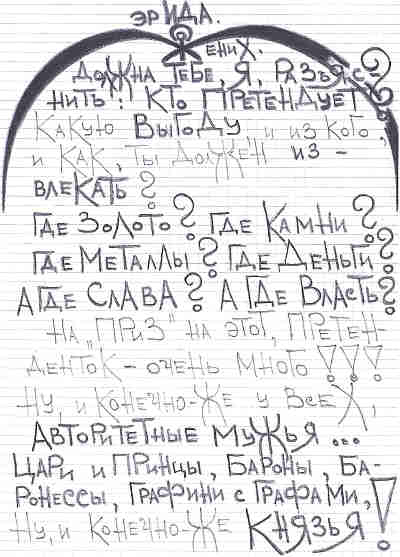 ЭРИДА.
ЖЕНИХ.
ДОЛЖНА ТЕБЕ, Я, РАЗЪЯС-
НИТЬ: КТО ПРЕТЕНДУЕТ?
КАКУЮ ВЫГОДУ, И ИЗ КОГО,
И КАК, ТЫ ДОЛЖЕН ИЗ-
ВЛЕКАТЬ?
ГДЕ ЗОЛОТО? ГДЕ КАМНИ?
ГДЕ МЕТАЛЛЫ? ГДЕ ДЕНЬГИ?
А ГДЕ СЛАВА? А ГДЕ ВЛАСТЬ?
НА „ПРИЗ" НА ЭТОТ, ПРЕТЕН-
ДЕНТОК - ОЧЕНЬ МНОГО!!!
НУ, И КОНЕЧНО-ЖЕ У ВСЕХ,
АВТОРИТЕТНЫЕ МУЖЬЯ...
ЦАРИ И ПРИНЦЫ, БАРОНЫ, БА-
РОНЕССЫ, ГРАФИНИ С ГРАФАМИ,
НУ, И КОНЕЧНО-ЖЕ КНЯЗЬЯ!